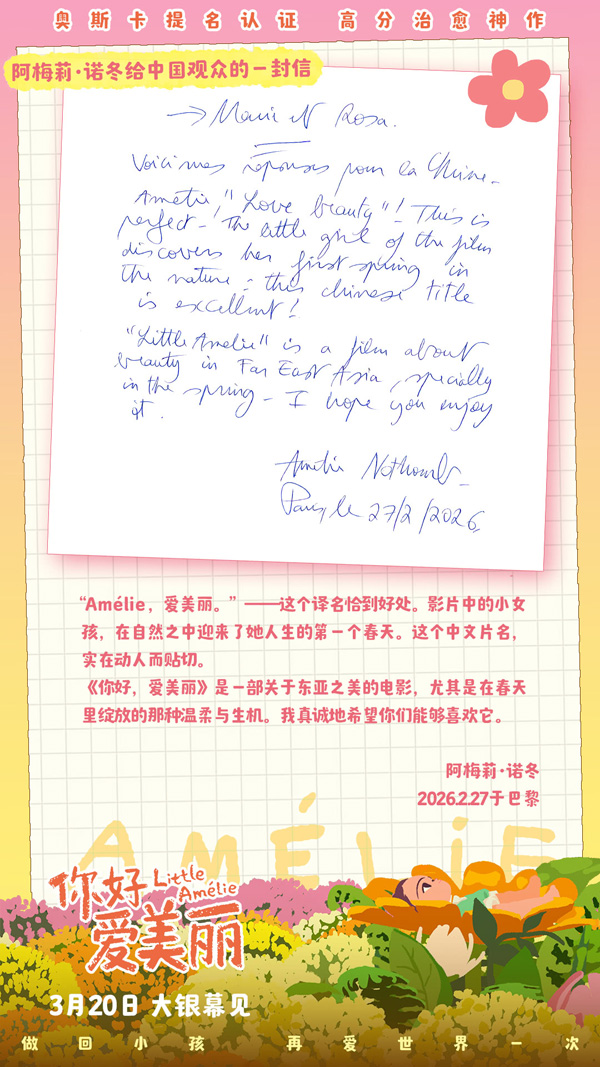 奥斯卡提名认证 高分治愈神作
阿梅莉·诺冬给中国观众的一封信
→ Marie et Rosa.
Voici mes réponses pour la Chine.
Amélie, "Love beauty"! This is
perfect! The little girl of the film
discovers her first spring in
the nature: this chinese title
is excellent!
"Little Amélie" is a film about
beauty in Far East Asia, specially
in the spring - I hope you enjoy
it.
Amélie Nothomb
Paris, le 27/2/2026
“Amélie，爱美丽。”——这个译名恰到好处。影片中的小女
孩，在自然之中迎来了她人生的第一个春天。这个中文片名，
实在动人而贴切。
《你好，爱美丽》是一部关于东亚之美的电影，尤其是在春天
里绽放的那种温柔与生机。我真诚地希望你们能够喜欢它。
阿梅莉·诺冬
2026.2.27于巴黎
AMÉLIE
你好
Little
Amélie
爱美丽
3月20日 大银幕见
做回小孩 再爱世界一次